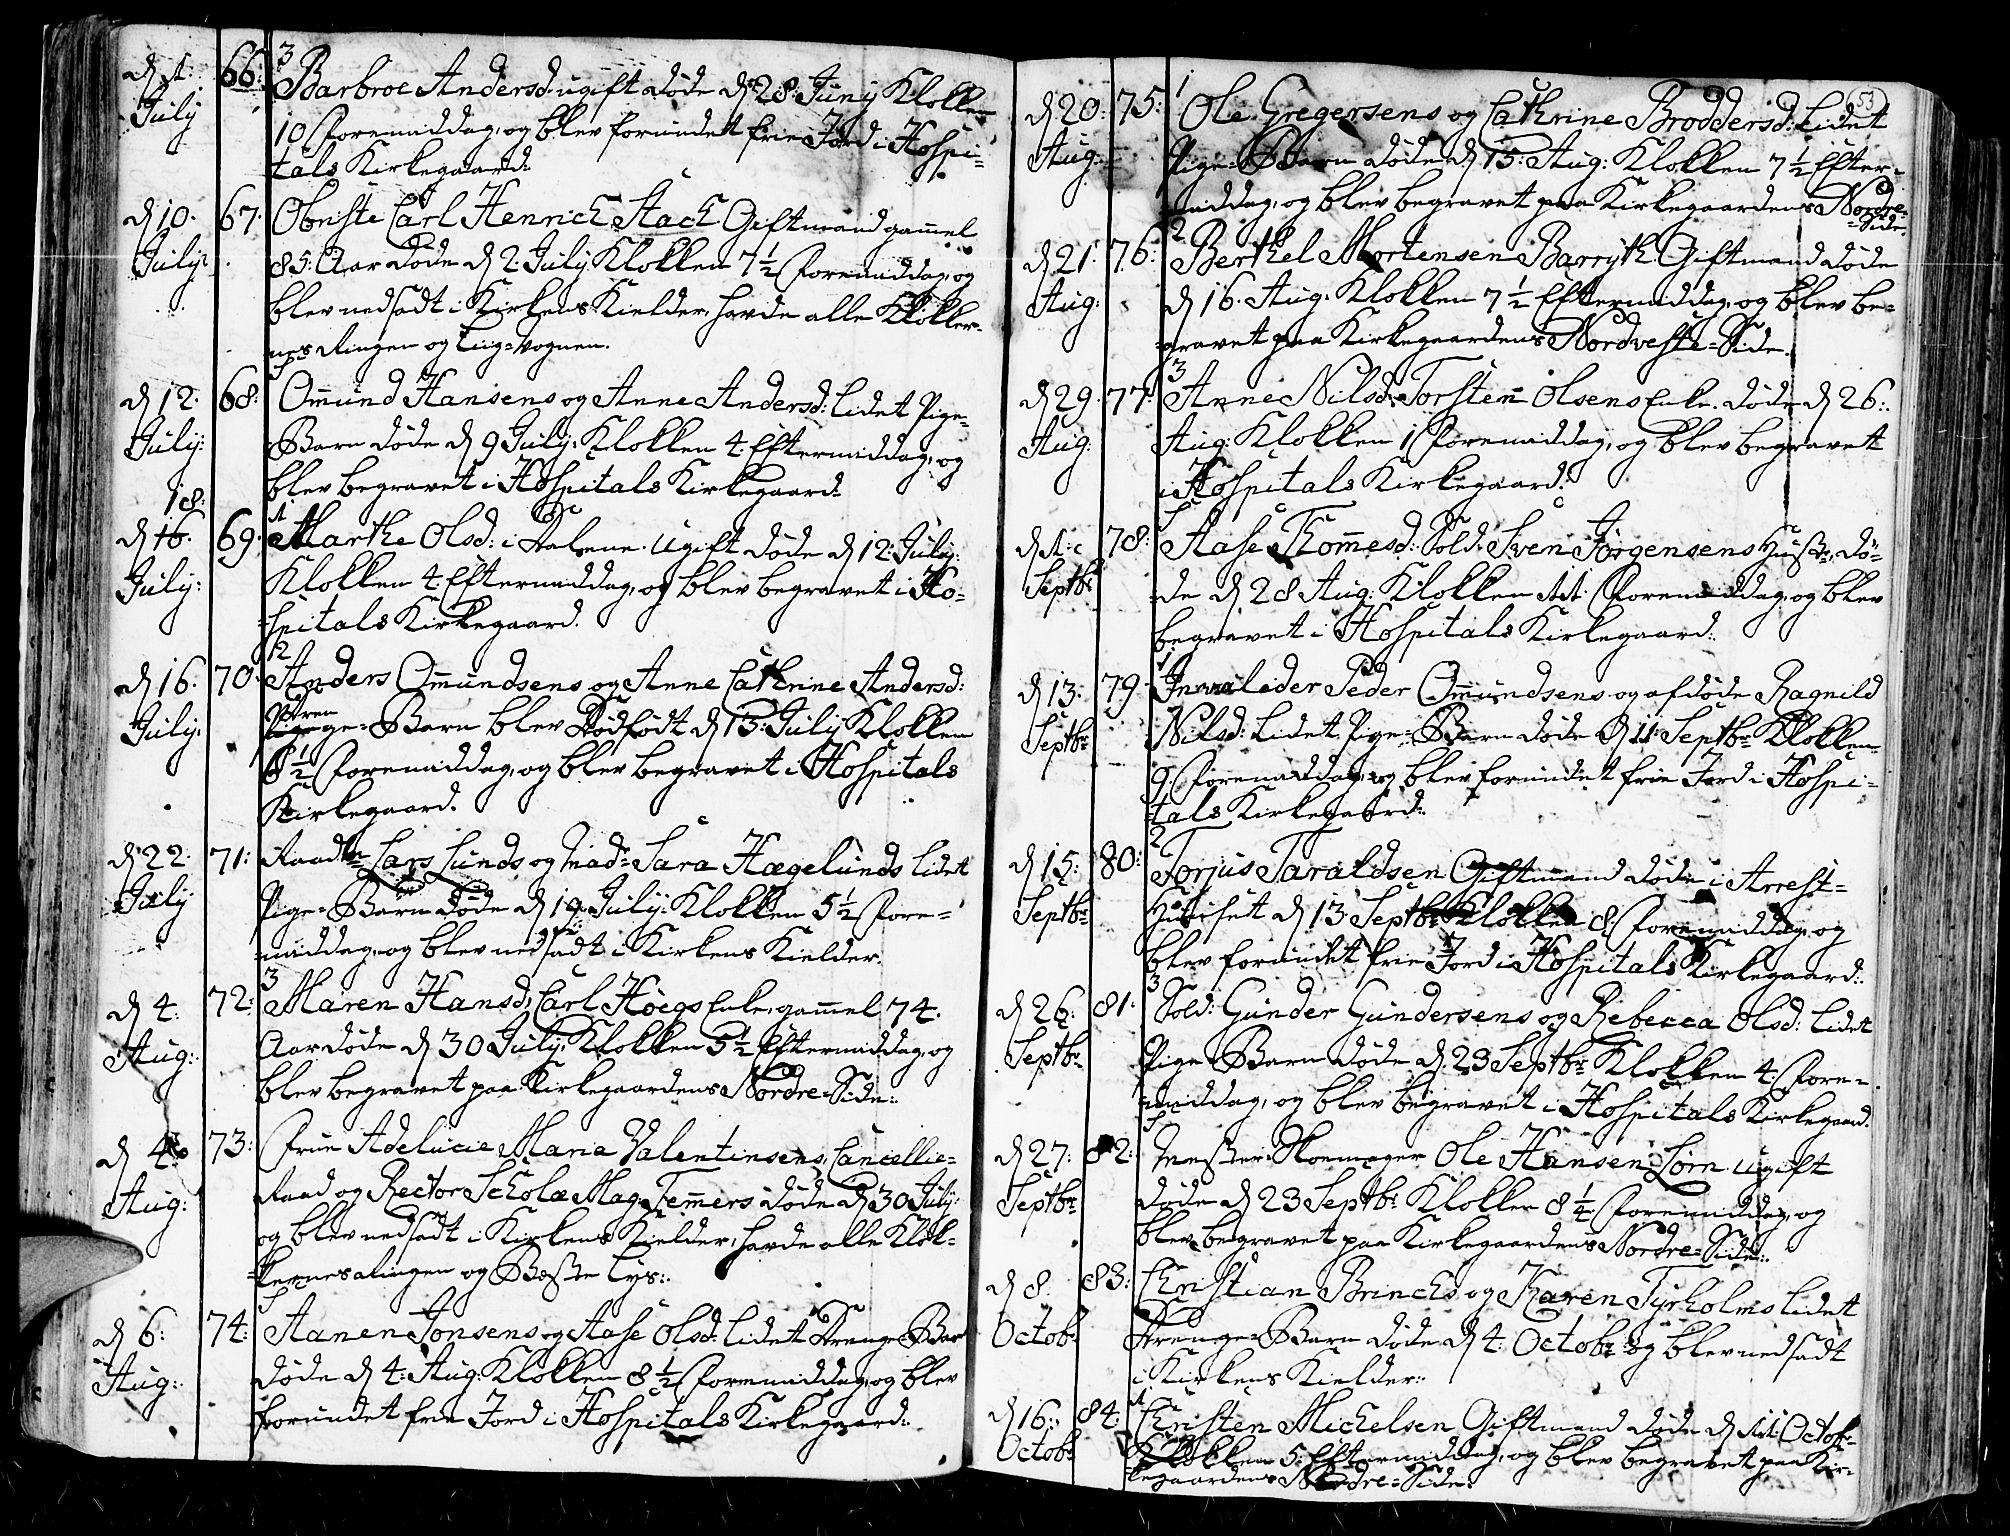 d 1. July 66. 3
Barbroe Andersd. ugift døde d 28 Juny Klokken
10 Formiddag, og blev forundet frie Jord i Hospi=
tals Kirkegaard.
d 10. July. 67. Obriste Carl Henrich Stack Giftmand gamel
85. Aar døde d 2. July Klokken 7½ Formiddag, og
blev nedsadt i Kirkens Kielder, havde alle Klokker=
nes Ringen og Liig=Vognen.
d 12. July: 68. Omund Hansens og Anne Andersd: Lidet Pige=
=Barn døde d 9 July. Klokken 4. Eftermiddag, og
blev begravet i Hospitals Kirkegaard.
18:
d 16. July: 69. 1
Marthe Olsd: i Dalene. Ugift døde d 12. July.
Klokken 4. Eftermiddag, og blev begravet i Ho=
=spitals Kirkegaard.
d 16. July. 70. 12
Anders Omundsens og Anne Cathrine Andersd:
Pige=Barn blev Dødfødt d 13. July Klokken
8½ Formiddag, og blev begravet i Hospitals
Kirkegaard.
d 22. July 71. Raadm Lars Lunds og Mad. Sara Hægelunds Lidet
Pige=Barn døde d 19. July. Klokken 5½ For=
=middag, og blev nedsadt i Kirkens Kielder.
d 4. Aug: 72. 3
Maren Hansd, Carl Höegs Enke, gamel 74.
Aar døde d 30 July. Klokken 5½ Eftermiddag, og
blev begravet paa Kirkegaardens Nordre=Side.
d 4. Aug: 73. Frue Adelucie Maria Valentinsens, Cancellie=
Raad og Rector Scholæ Mag. Temmers døde d 30 July.
og blev nedsadt i Kirkens Kielder, havde alle Klok=
=kernes Ringen og Beste Lys.
d 6. Aug: 74. Aanen Jonsens og Aase Olsd: Lidet Drenge=Bar
døde d 4. Aug: Klokken 8½ Formiddag, og blev
forundet frie Jord i Hospitals Kirkegaard.
53
d 20. Aug: 75. 1
Ole Gregersens og Cathrine Broddersd: Lidet
Pige=Barn døde d 15. Aug: Klokken 7½ Efter=
middag, og blev begravet paa Kirkegaardens Nordre=
=Side.
d 21. Aug: 76. 2
Berthel Mortensen Barryth Giftmand døde
d 16. Aug: Klokken 7½ Eftermiddag, og blev be=
=gravet paa Kirkegaardens Nordveste=Side.
d 29. Aug: 77. 3
Anne Nilsd. Torsten Olsens Enke. døde d 26.
Aug: Klokken 1 Formiddag, og blev begravett
i Hospitals Kirkegaard.
d 1. Septbr 78. Aase Thomesd: Sold: Sven Jörgensens Hustr. dö=
=de d 28 Aug: Klokken 11. Formiddag, og blev
begravet i Hospitals Kirkegaard.
d 13. Septbr 79. 1
Invaleder Peder Omundsens og afdøde Ragnild
Nilsd: Lidet Pige=Barn døde d 11. Septbr Klokken
9. Formiddag, og blev forundet frie Jord i Hospi=
=tals Kirkegaard.
d 15. Septbr 80. 2
Torjus Taraldsen Giftmand døde i Arrest=
Huuset d 13. Septbr Klokken 8. Formiddag, og
blev forundet frie Jord i Hospitals Kirkegaard.
d 26. Septbr. 81. 3
Sold: Gunder Gundersens og Rebecca Olsd: Lidet
Pige=Barn døde d 23 Septbr Klokken 4. For=
=middag, og blev begravet i Hospitals Kirkegaard.
d 27. Septbr 82. Mester Skomager Ole Hansen Lörn. Ugift
døde d 23 Septbr. Klokken 8¼ Formiddag, og
blev begravet paa Kirkegaardens Nordre=Side.
d 8. Octob: 83. Christian Brincks og Karen Tyrholms Lidet
Drenge=Barn døde d 4. Octobr. og blev nedsadt
i Kirkens Kielder.
d 16. Octob: 84. 1
Christen Michelsen Giftmand døde d 11. Octob.
Klokken 5. Eftermiddag, og blev begravet paa Kir=
kegaardens Nordre=Side.